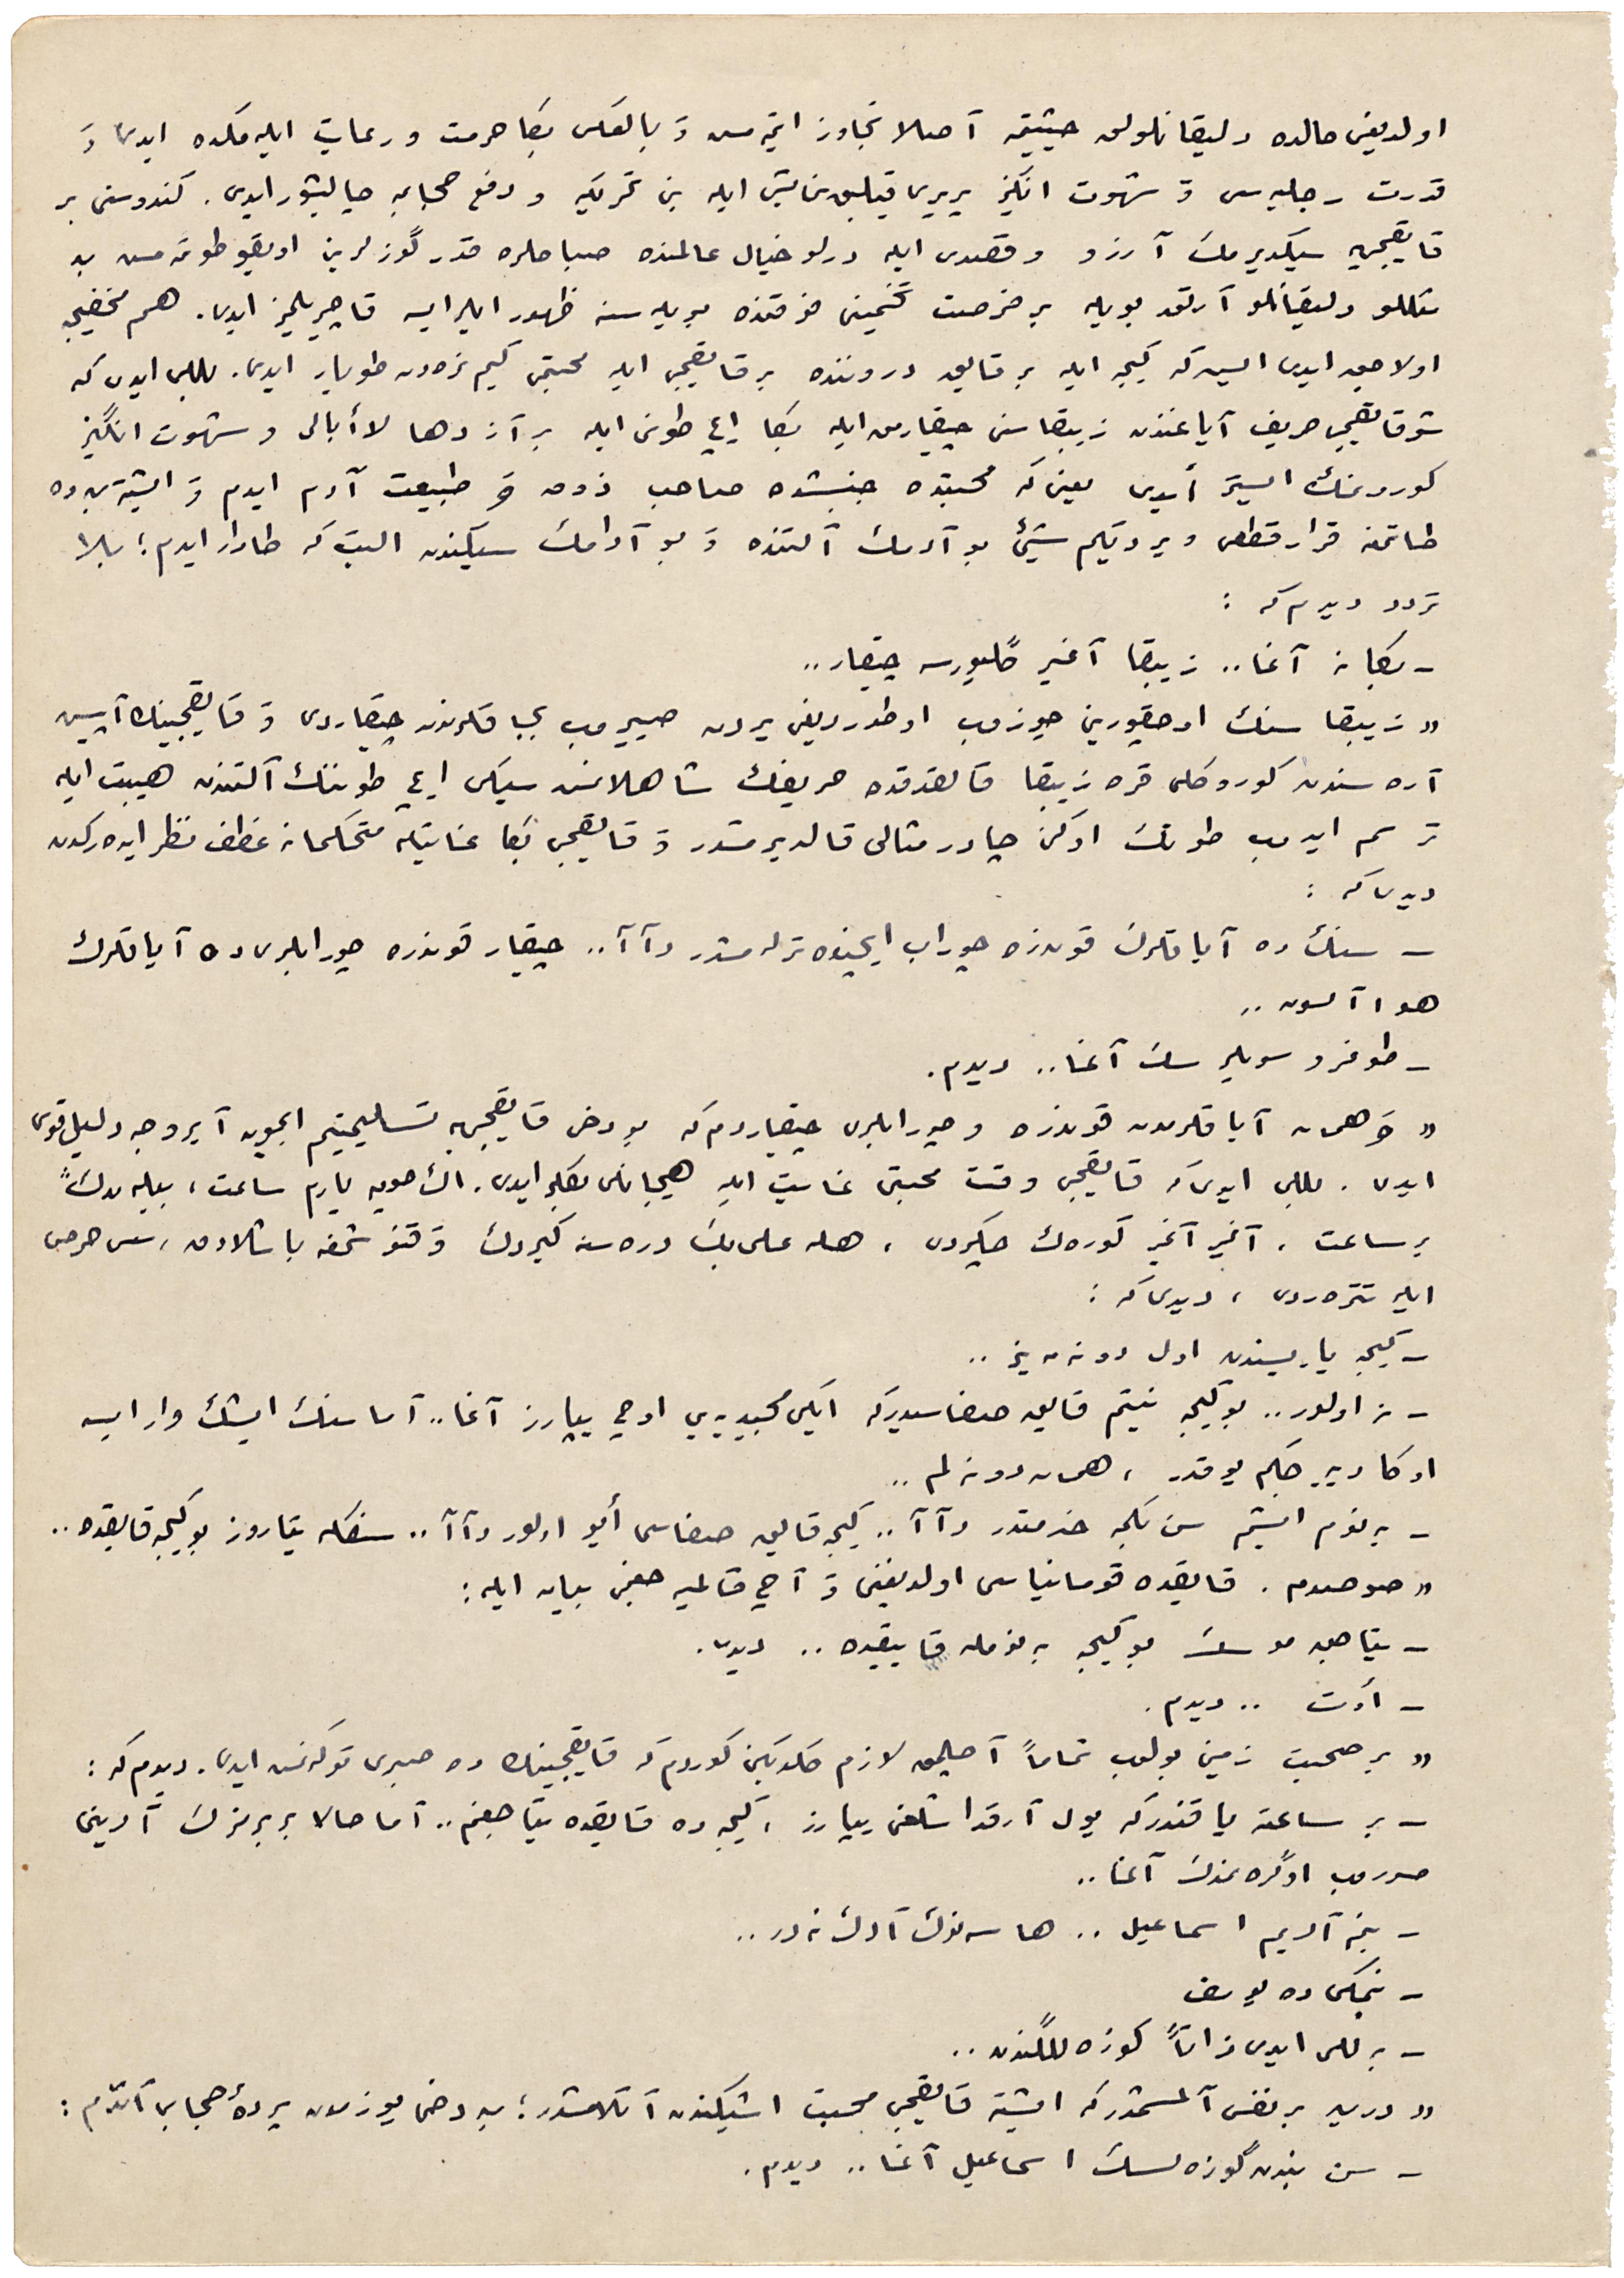 اولدیغی حالده دلیقانلولق حیثیتیه آصلا تجاوز ایتمه‌مه وَ بالعکس بڭا حرمت و رعایت ایله‌مکده ایدی وَ
قدرت رجلیه‌سی وَ شهوت انگیز بربری قیلیق نمایش ایله بنی تحریکه و دفع حجابه چالیشور ایدی. کندوسنی بر
قایقجی‌یه سیکدیرمك آرزو و قصدی ایله درلو خیال عالمنده صباحلره قدر گوزلرینه اویقو طوتمه‌مه
دلیقانلو آرتق بویله بر فرصت بویله‌سنه ظهور ایلر ایسه قاچیرلمز ایدی. هم مخفیجه
اولاجق ایدی گیجه ایله بر قایق دروننده بر قایقجی ایله محبتی کیم نره‌دن طویار ایدی. بللی ایدی که
شو قایقجی حریف آیاغندن زیپقاسنی چیقارمق ایله بڭا ایچ طونی ایله بر آز دها لاأبالی و شهوت انگیز
کورونمك ایستر ایدی یعنی که محبتده جنبشده صاحب ذوق وَ طبیعت آدم ایدم وَ ایشته بن ده
طاتمغه قرار قطعی ویردیگم شیئی بو آدمك آلتنده وَ بو آدامك سیکندن البت که طادار ایدم؛ بلا
تردد دیدم که :
– بڭا نه آغا.. زیپقا آغیر گلیورسه چیقار..
« زیپقا سنك اوچقورینی چوزوب اوطوردیغی یردن صییروب بجاقلرندن چیقاردی وَ قایقجینك آپیش
آره‌سندن کوروکلی قره زیپقا قالقدقده حریفك شاهلانمش سیکی ایچ طوننك آلتندن هیبت ایله
ترسم ایدوب طونك اوکنی چادر مثالی قالدیرمشدر وَ قایقجی بڭا غایتله متحکمانه عطف نظر ایده‌رکدن
دیدی که :
– سنك ده آیاقلرك قوندره چوراب ایچنده ترله‌مشدر دآآ.. چیقار قوندره چورابلری ده آیاقلرك
هوا آلسون ..
– طوغرو سویلرسك آغا.. دیدم.
« وَ همان آیاقلرمدن قوندره و چورابلری چیقاردم که بو دخی قایقجی‌یه تسلیمیتم ایچون آیروجه دلیل قوی
ایدی. بللی ایدی که قایقجی وقت محبتی غایت ایله هیجانلی بکلر ایدی. اك صوڭ یارم ساعت، بیله‌مدك
بر ساعت، آغیر آغیر کوره‌ك چکردی، هله علی بك دره‌سنه گیردك وَقتفو شخه باشلادی، سسی حرص
ایله تتره‌ردی، دیدی که :
– گیجه یاریسندن اول دونه‌مه‌یز ..
– نه اولور.. بو گیجه نیتم قایق صفاسیدر که ایکی مجیدیه‌یی اوچ یاپارز آغا.. آما سنك ایشك وار ایسه
اوکا دییه‌جکم یوقدر، همان دونه‌لم ..
– بنوم ایشم سنی بکلمه خدمتدر دآآ.. گیجه قایق صفاسی أیو اولور دآآ.. سنڭله یتاروز بو گیجه قایقده..
« صوصدم. قایقده قومانیاسی اولدیغنی وَ آچ قالمیه‌جغنی بیان ایله :
– یتاجق موسك بو گیجه به‌نومله قاییقده .. دیدی.
– أوت .. دیدم.
« بر صحبت زمینی بولوب تماماً آچلمق لازم گلدیگنی گوردم که قایقجینك ده صبری توکنمش ایدی. دیدم که :
– بر ساعته یاقیندر که یول آرقداشلغی یاپارز، گیجه ده قایقده یتاجغز.. آما حالا بربرمزك آدینی
صوروب اوگره‌نمدك آغا..
– بنم آدیم اسماعیل .. ها سه‌نوك آدك نه در ..
– بنمکی ده یوسف
– به‌للی ایدی ذاتاً گوزه‌للگندن ..
« درین بر نفس آلمشمدر که ایشته قایقجی محبت اشیگندن آتلامشدر؛ بن دخی یوزمدن پردۀ حجابی آتدم :
– سن بندن گوزه‌لسك اسماعیل آغا.. دیدم.